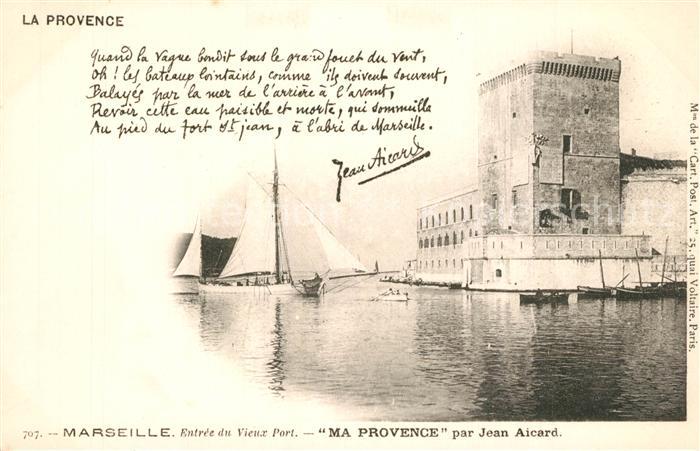 LA PROVENCE
Quand la vague bondit sous le grand fouet du vent,
Oh ! les bateaux lointains, comme ils doivent souvent,
Balayés par la mer de l'arrière à l'avant,
Revoir cette eau paisible et morte, qui sommeille
Au pied du fort St jean, à l'abri de Marseille.
Jean Aicard
Mon de la "Cart. Post. Art." 25, quai Voltaire, Paris.
707. — MARSEILLE. Entrée du Vieux Port. — "MA PROVENCE" par Jean Aicard.